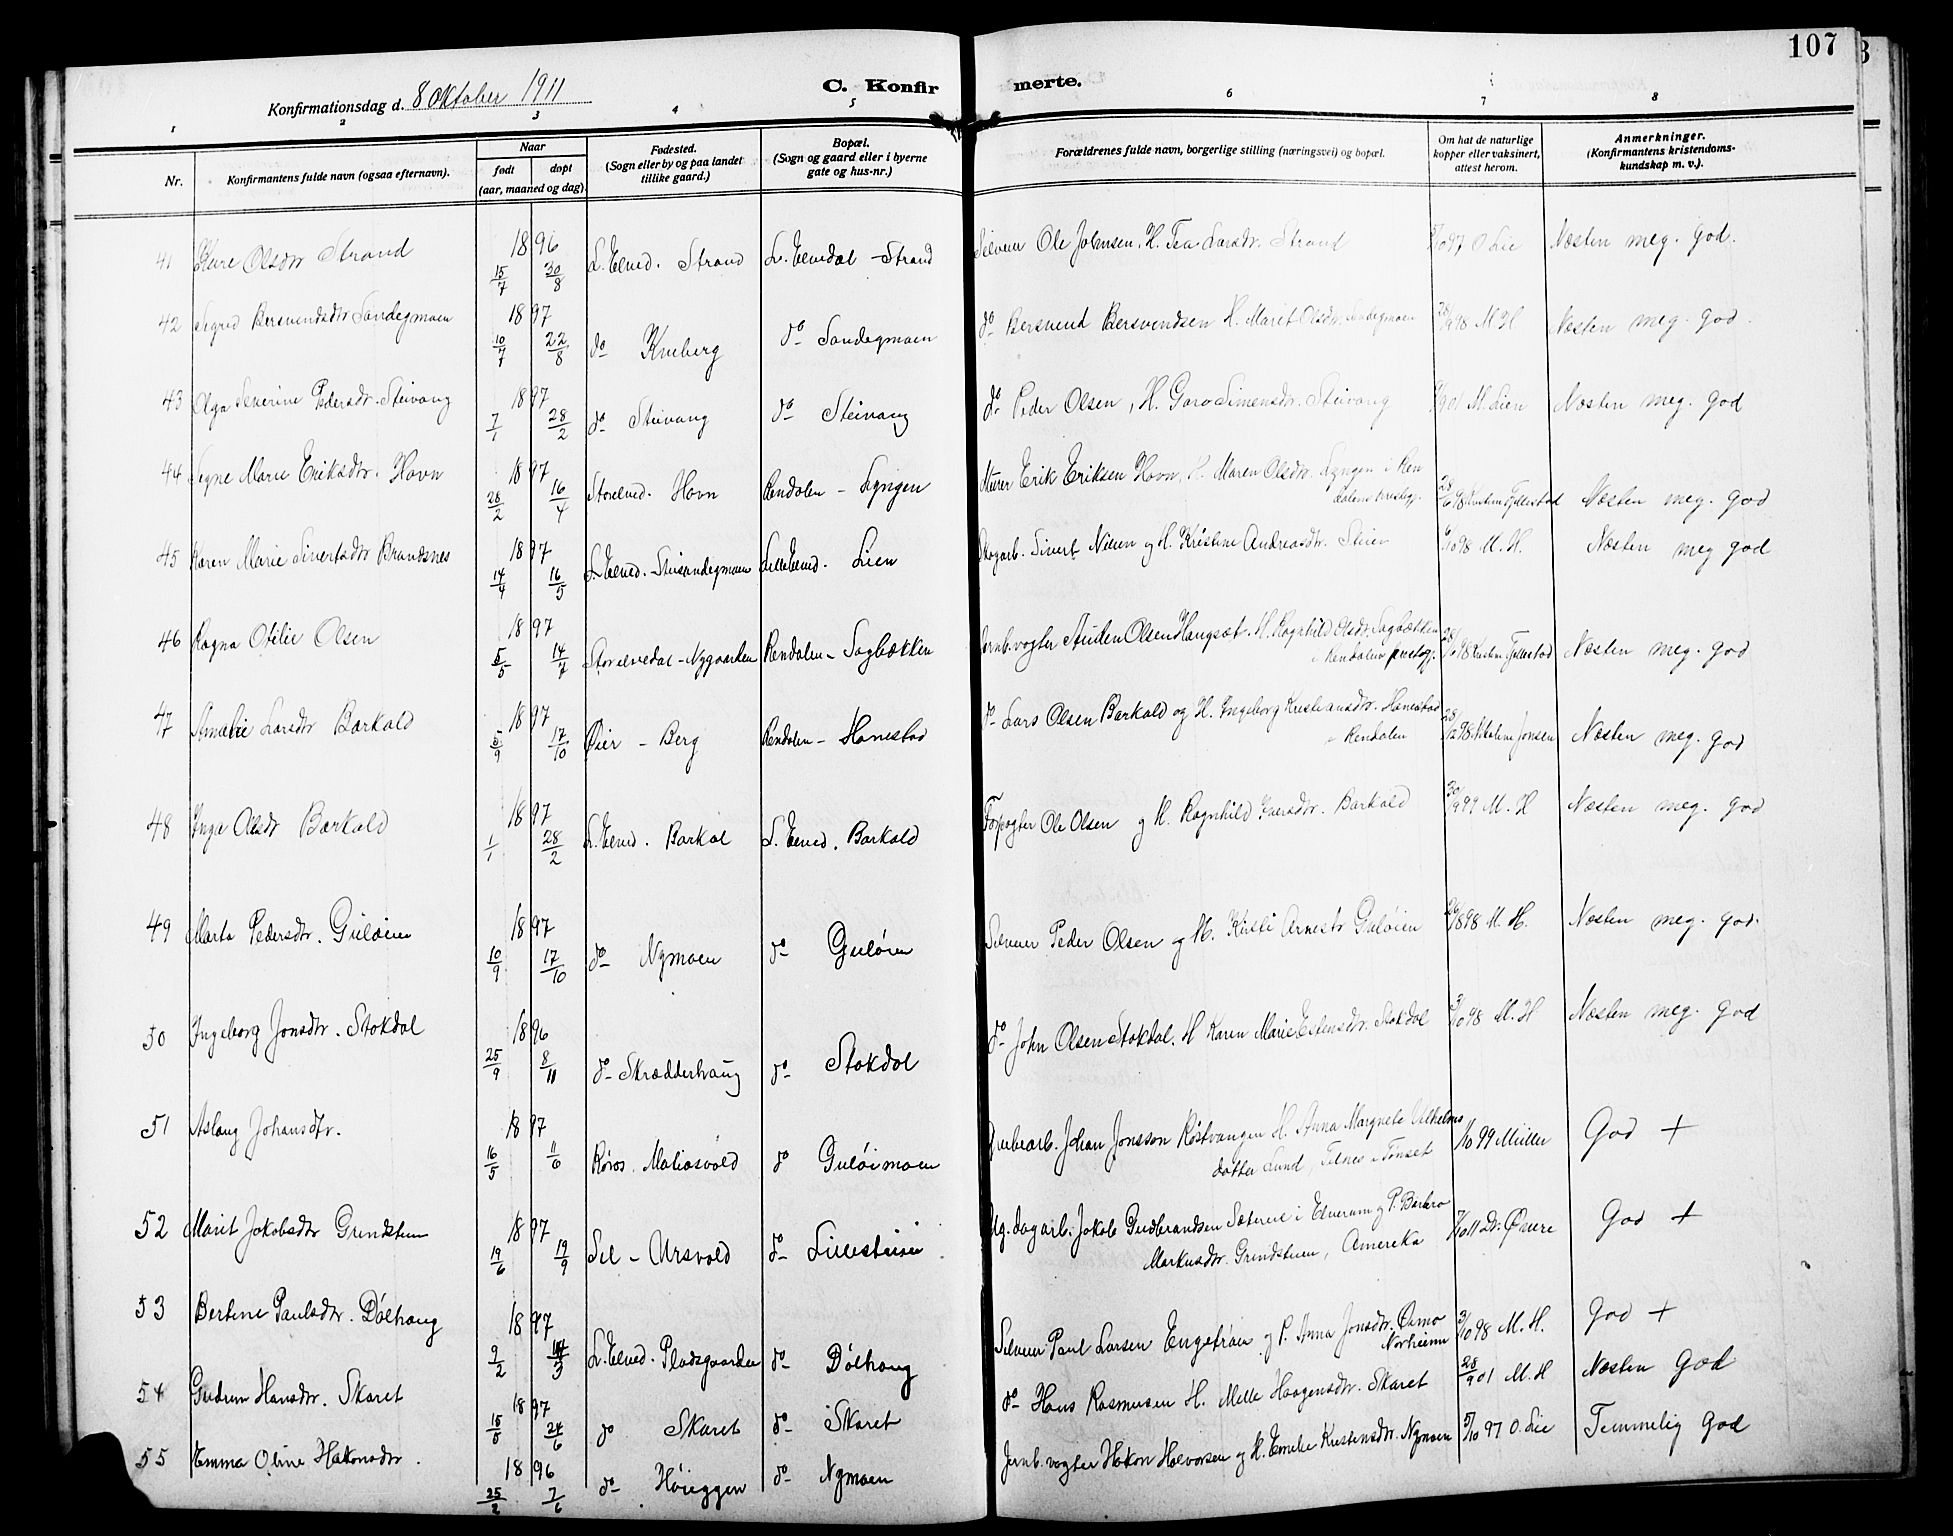 107
Konfirmationsdag d. 8 Oktober 1911
C. Konfirmerte.
1 2 3 4 5 6 7 8
Nr.
Konfirmantens fulde navn (ogsaa efternavn).
Naar
født
døpt
(aar, maaned og dag).
Fødested.
(Sogn eller by og paa landet
tillike gaard.)
Bopæl.
(Sogn og gaard eller i byerne
gate og hus-nr.)
Forældrenes fulde navn, borgerlige stilling (næringsvei) og bopæl.
Om hat de naturlige
kopper eller vaksinert,
attest herom.
Anmerkninger.
(Konfirmantens kristendoms-
kundskap m. v.).
41 Kare Olsdtr Strand 1896 15/7 30/8 L. Elved. Strand L. Elvedal - Strand Selveier Ole Johnsen, H. Tea Larsdr. Strand 97 O Lie Næsten meg. god.
42 Sigrid Bersvendsdtr Sandegmoen 1897 10/7 22/8 do Kveberg do Sandegmoen do Bersvend Bersvendsen H. Marit Olsdr. Sandegmoen 28/9 98 M H Næsten meg. god
43 Olga Severine Pedersdr. Steivang 1897 7/1 28/2 do Steivang do Steivang do Peder Olsen, H. Goro Simensdr. Steivang 01 M. Lien Næsten meg. god
44 Signe Marie Eriksdtr. Hovn 1897 28/2 16/4 Storelved. Hovn Rendalen - Lyngen Murer Erik Eriksen Hovn, H. Maren Olsdtr. Lyngen i Ren
dalens prestegj. 28/6 98 Kristine Fjellestad Næsten meg. god
45 Karen Marie Sivertsdtr Brandsnes 1897 14/4 16/5 L. Elved. - Steisandegmoen Lille Elved. Lien Skogarb. Sivert Nilsen og H. Kristine Andreasdtr. Steien 6/10 98 M. H. Næsten meg god
46 Ragna Otilie Olsen 1897 5/5 14/7 Storelvedal - Nygaarden Rendalen - Sagbækken Jernb.vogter Audien Olsen Haugsæt. H. Ragnhild Olsdr. Sagbækken
i Rendalens prestegj. 28/10 98 Kristine Fjellestad Næsten meg. god
47 Amalie Larsdtr Barkald 1897 5/9 17/10 Øier - Berg Rendalen - Hanestad do Lars Olsen Barkald og H. Ingeborg Kristiansdtr. Hanestad
i Rendalen 28/12 98 Jonsen Næsten meg. god
48 Inga Olsdr Barkald 1897 1/1 28/2 L. Elved. Barkal L. Elved. Barkald Ole Olsen og H. Ragnhild Iversdtr. Barkald 30/9 99 M. H Næsten meg. god
49 Marta Pedersdtr. Guløien 1897 10/9 17/10 do Nymoen do Guløien Selveier Peder Olsen og H. Kirsti Arnestr Guløien 26/8 98 M. H. Næsten meg. god.
50 Ingeborg Jonsdtr. Stokdal 1896 25/9 8/11 do - Skrædderhaug do Stokdal do John Olsen Stokdal. H Karen Marie Estensdtr. Stokdal 3/10 98 M. H Næsten meg. god
51 Aslaug Johansdtr. 1897 16/5 11/6 Røros. Matiasvold do Guløimoen Grubearb. Johan Jonsson Røstvangen H. Anna Margrete Vilhelms
datter Lund, Telnes i Tønset /10 99 Müller God +
52 Marit Jakobsdtr Grindstuen 1897 19/6 19/9 Sel - Ursvold do Lillesteien dagarb. Jakob Gudbrandsen Sæterie i Elverum og P. Barbro
Markusdtr. Grindstuen, Amerika 7/10 11 Dr. Øvere God +
53 Bertine Paulsdtr. Dølhaug 1897 9/2 14/3 L. Elved. Pladsgaarden do Dølhaug Selveier Paul Larsen Engetrøen og P. Anna Jonsdtr. Øsmo
Norheim 3/10 98 M. H. God +
54 Gudrun Hansdtr. Skaret 1897 15/5 24/6 do Skaret do Skaret do Hans Rasmusen H. Melle Haagensdtr. Skaret 28/9 01 M. H Næsten God
55 Emma Oline Hakonsdtr. 1896 25/2 7/6 do Høieggen do Nymoen Jernb.vogter Hakon Halvorsen og H. Emilie Kristensdtr. Nymoen 5/10 97 O. Lie Temmelig god